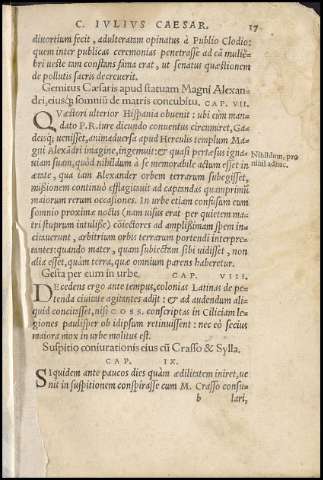 C. IVLIVS CAESAR. 17
diuortium fecit, adulteratam opinatus à Publio Clodio:
quem inter publicas ceremonias penetrasse ad eã muliẽ
bri ueste tam constans fama erat, ut senatus quæstionem
de pollutis sacris decreuerit.
Gemitus Cæsaris apud statuam Magni Alexan-
dri, eiusq; somniũ de matris concubitu. CAP. VII.
QVæstori ulterior Hispania obuenit: ubi cùm man
dato P.R. iure dicundo conuentus circumiret, Ga
desq; uenisset, animaduersa apud Herculis templum Ma
gni Alexãdri imagine, ingemuit: & quasi pertæsus igna-
uiam suam, quòd nihildum à se memorabile actum esset in
ætate, qua iam Alexander orbem terrarum subegisset,
missionem continuò efflagitauit ad captandas quamprimũ
maiorum rerum occasiones. In urbe etiam confusum eum
somnio proximæ noctis (nam uisus erat per quietem ma-
tri stuprum intulisse) cõiectores ad amplissimam spem in-
citauerunt, arbitrium orbis terrarum portendi interpre-
tantes: quando mater, quam subiectam sibi uidisset, non
alia esset, quàm terra, quæ omnium parens haberetur.
Nihildum, pro
nihil adhuc.
Gesta per eum in urbe. CAP. VIII.
DEcedens ergo ante tempus, colonias Latinas de pe-
tenda ciuitate agitantes adijt: & ad audendum ali-
quid concisset, nisi COSS. conscriptas in Ciliciam le-
giones paulisper ob idipsum retinuissent: nec eò secius
maiora mox in urbe molitus est.
Suspitio coniurationis eius cũ Crasso & Sylla.
CAP. IX.
SIquidem ante paucos dies quàm ædilitatem iniret, ue
nit in suspitionem conspirasse cum M. Crasso consu-
b lari,